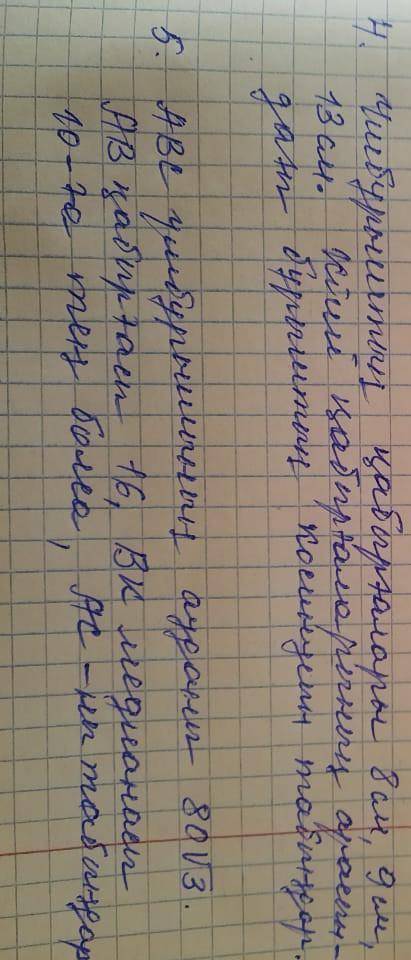 4. Үшбұрыштың қабырғалары 8 см, 9 м,
13 см. Кіші қабырғаларының арасын-
дағы бұрыштың косинусын табыңдар.
5. АВС үшбұрышының ауданы 80√3.
АВ қабырғасы 16, ВК медианасы
10-ға тең болса, АС-ны табыңдар